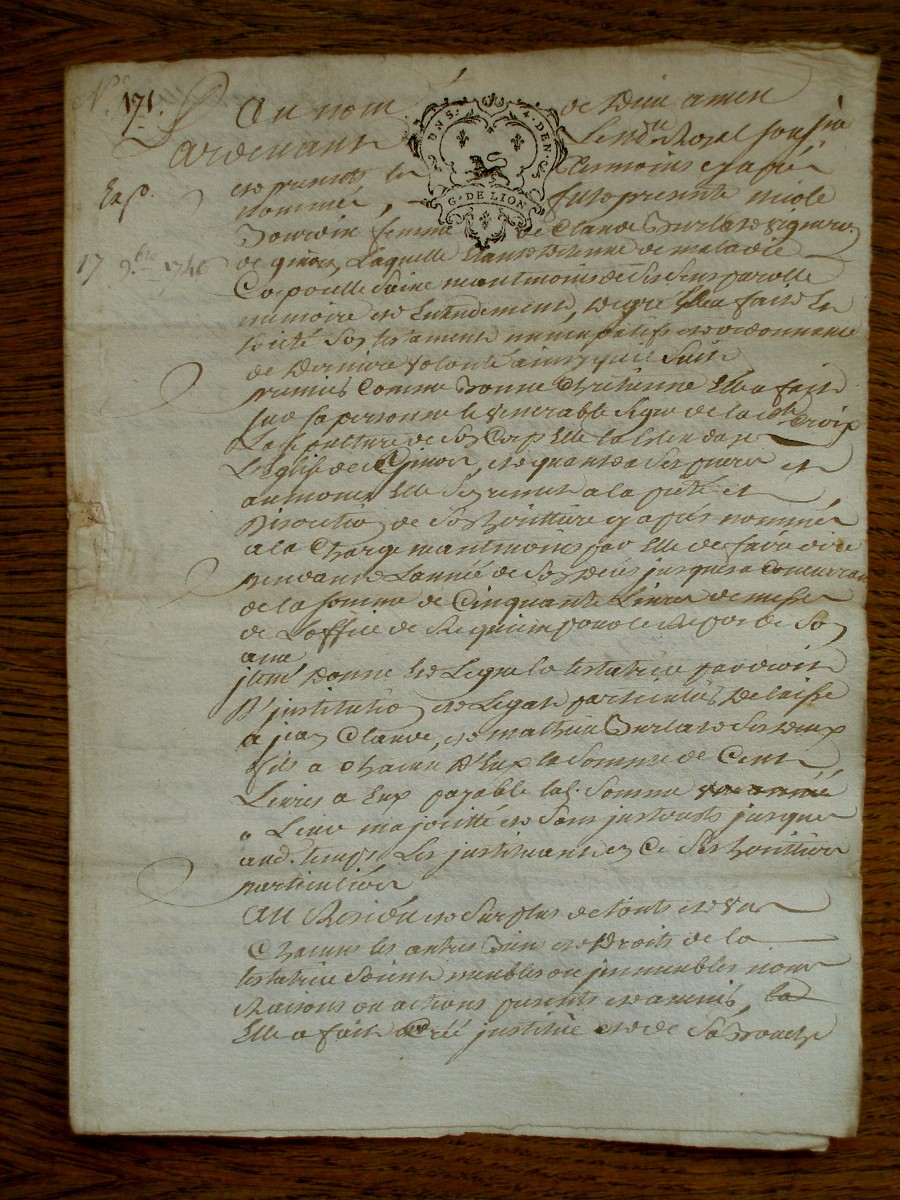 N° 171.
Au nom de Dieu amen
Pardevant Le no.re Royal soussi
Exp.
et presents les tesmoins cy apres
nommés, fut presente nicole
DNS. 4. DEN.S
G. DE LION
Bourdin femme de Claude Burlat vigneron
17 9.bre 1746
de ginai, Laquelle etante detenue de maladie
Corporelle saine neantmoins de ses sens parolle
memoire et Entendement, de gré Elle a fait et
dicté son testament nuncupatif et ordonnance
de Derniere volonté ainsy quil suit
premier Comme Bonne Chretienne Elle a fait
sur sa personne le venerable signe de la Ste Croix
La sepulture de son Corp Elle la Elendue
L'eglise de, et quant a ses prieres et
aumones Elle s'en remet a la pieté et
Discretion de son heritiere cy apres nommée
a la Charge neantmoins par Elle de faire dire
pendant L'année de son deces jusques a Concurrance
de la somme de Cinquante Livres de messes
de L'office de Requiem pour le Repos de son
ame
jtem Donne et Legue la testatrice par droit
D'institution et Legat particulier Delaisse
a jean Claude, et mathieu Burlat ses deux
fils a chacun D'Eux la somme de Cent
Livres a Eux payable lad. somme
a Leur majorité et sans interests jusques
aud. temps Les instituant en Ce ses heritiers
particuliers
Au Residu et surplus de touts et un
Chacuns les autres Biens et Droits de la
testatrice soient meubles ou immeubles noms
Raisons ou actions presents et avenir, la
Elle a fait créé institué et de sa Bouche